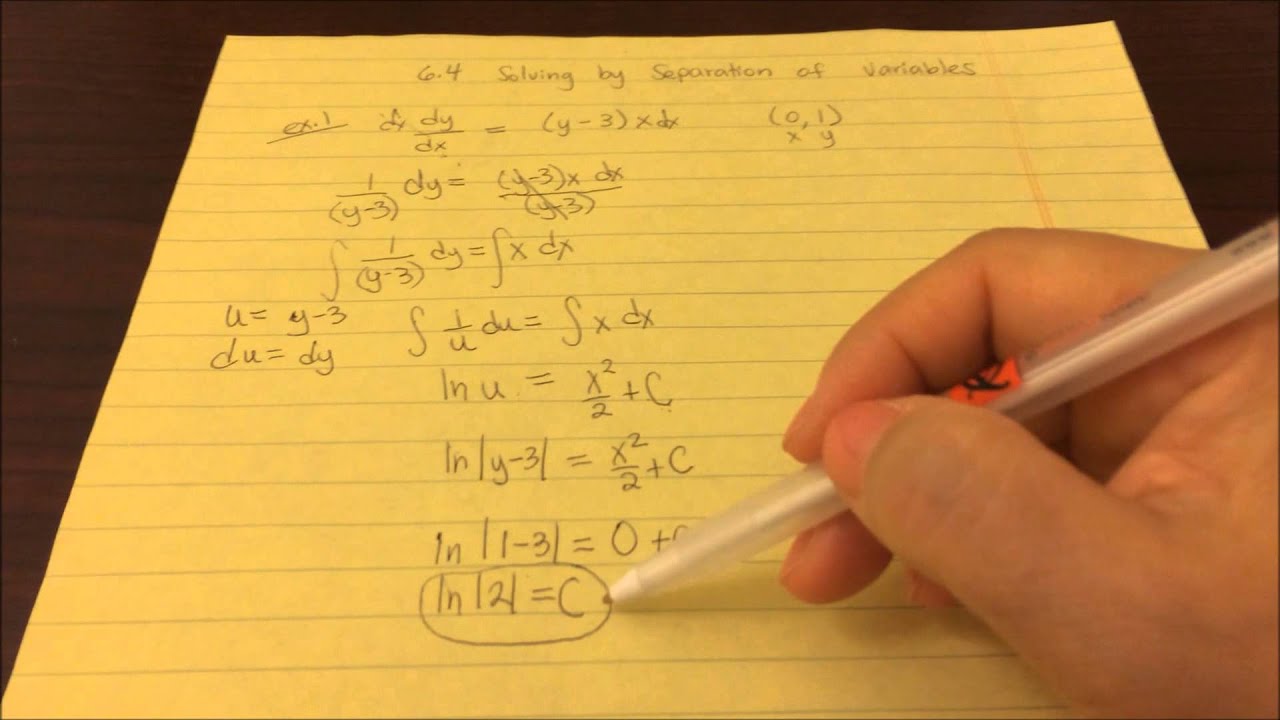 6.4 Solving by Separation of Variables
ex.1 dx dy/dx = (y-3) x dx (0, 1)
x y
1/(y-3) dy = (y-3)x dx/(y-3)
∫ 1/(y-3) dy = ∫ x dx
u = y-3 ∫ 1/u du = ∫ x dx
du = dy
ln u = x²/2 + C
ln |y-3| = x²/2 + C
ln |1-3| = 0 +
ln |2| = C